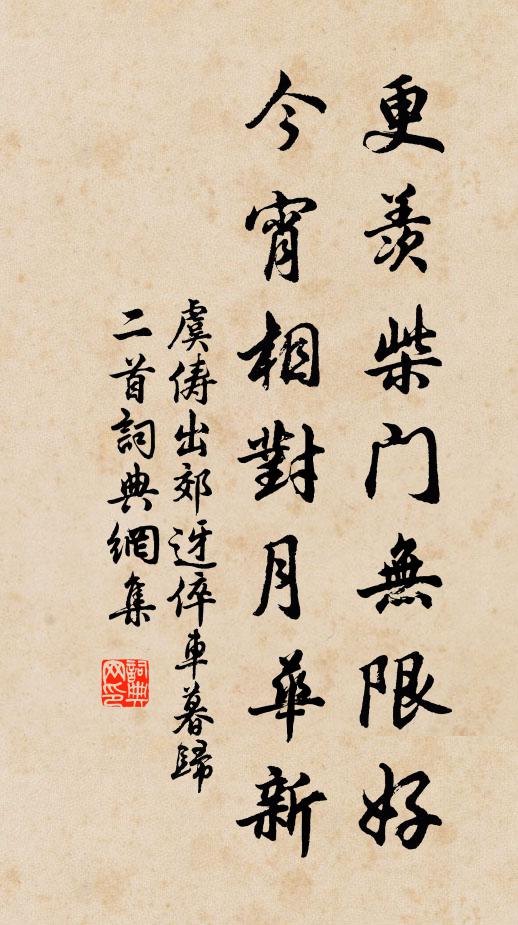 更羡柴门無限好
今宵相對月華新
虞俦出郊迓倅車暮歸
二首詞典網集
詞典网印